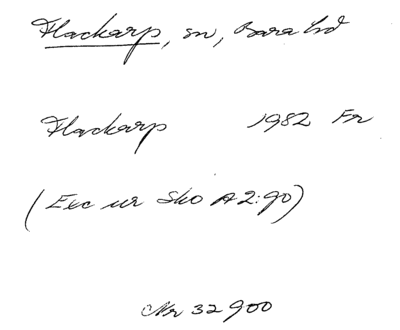 Flackarp, sn, Bara hd
Flackarp 1982 Fr
(Exc ur Sko A2:90)
Nr 32900